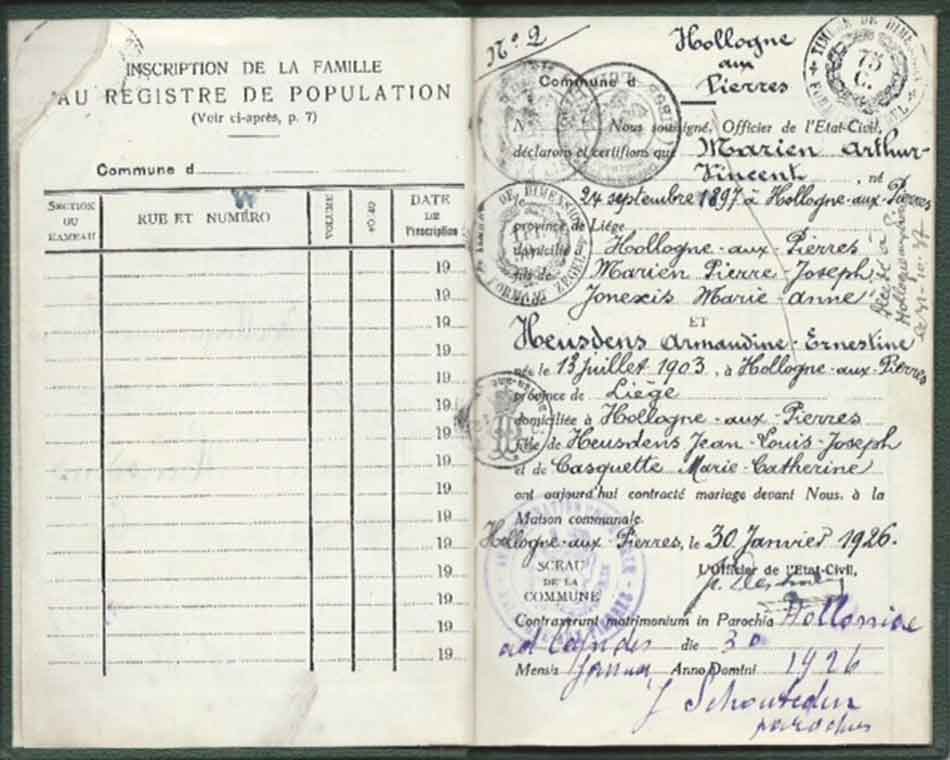 INSCRIPTION DE LA FAMILLE
AU REGISTRE DE POPULATION
(Voir ci-après, p. 7)
Commune d
SECTION OU HAMEAU
RUE ET NUMÉRO
VOLUME
FOLIO
DATE DE l'inscription
19
19
19
19
19
19
19
19
19
19
19
19
19
19
19
N° 2
Hollogne
aux
Commune d Pierres
TIMBRE DE DIMENSION
75 C.
N Nous soussigné, Officier de l'Etat-Civil,
déclarons et certifions que Marien Arthur-
Vincent, né
le 24 septembre 1897 à Hollogne-aux-Pierres
province de Liége
domicilié Hollogne-aux-Pierres
fils de Marien Pierre-Joseph
Jonexis Marie-Anne
ET
Heusdens Armandine-Ernestine
née le 13 juillet 1903, à Hollogne-aux-Pierres
province de Liège
domiciliée à Hollogne-aux-Pierres
fille de Heusdens Jean-Louis-Joseph
et de Casquette Marie-Catherine
ont aujourd'hui contracté mariage devant Nous, à la
Maison communale.
Hollogne-aux-Pierres, le 30 Janvier 1926.
SCEAU
DE LA
COMMUNE
L'Officier de l'Etat-Civil,
Contraxerunt matrimonium in Parochia
ad die 30
Mensis Anno Domini 1926
parochus